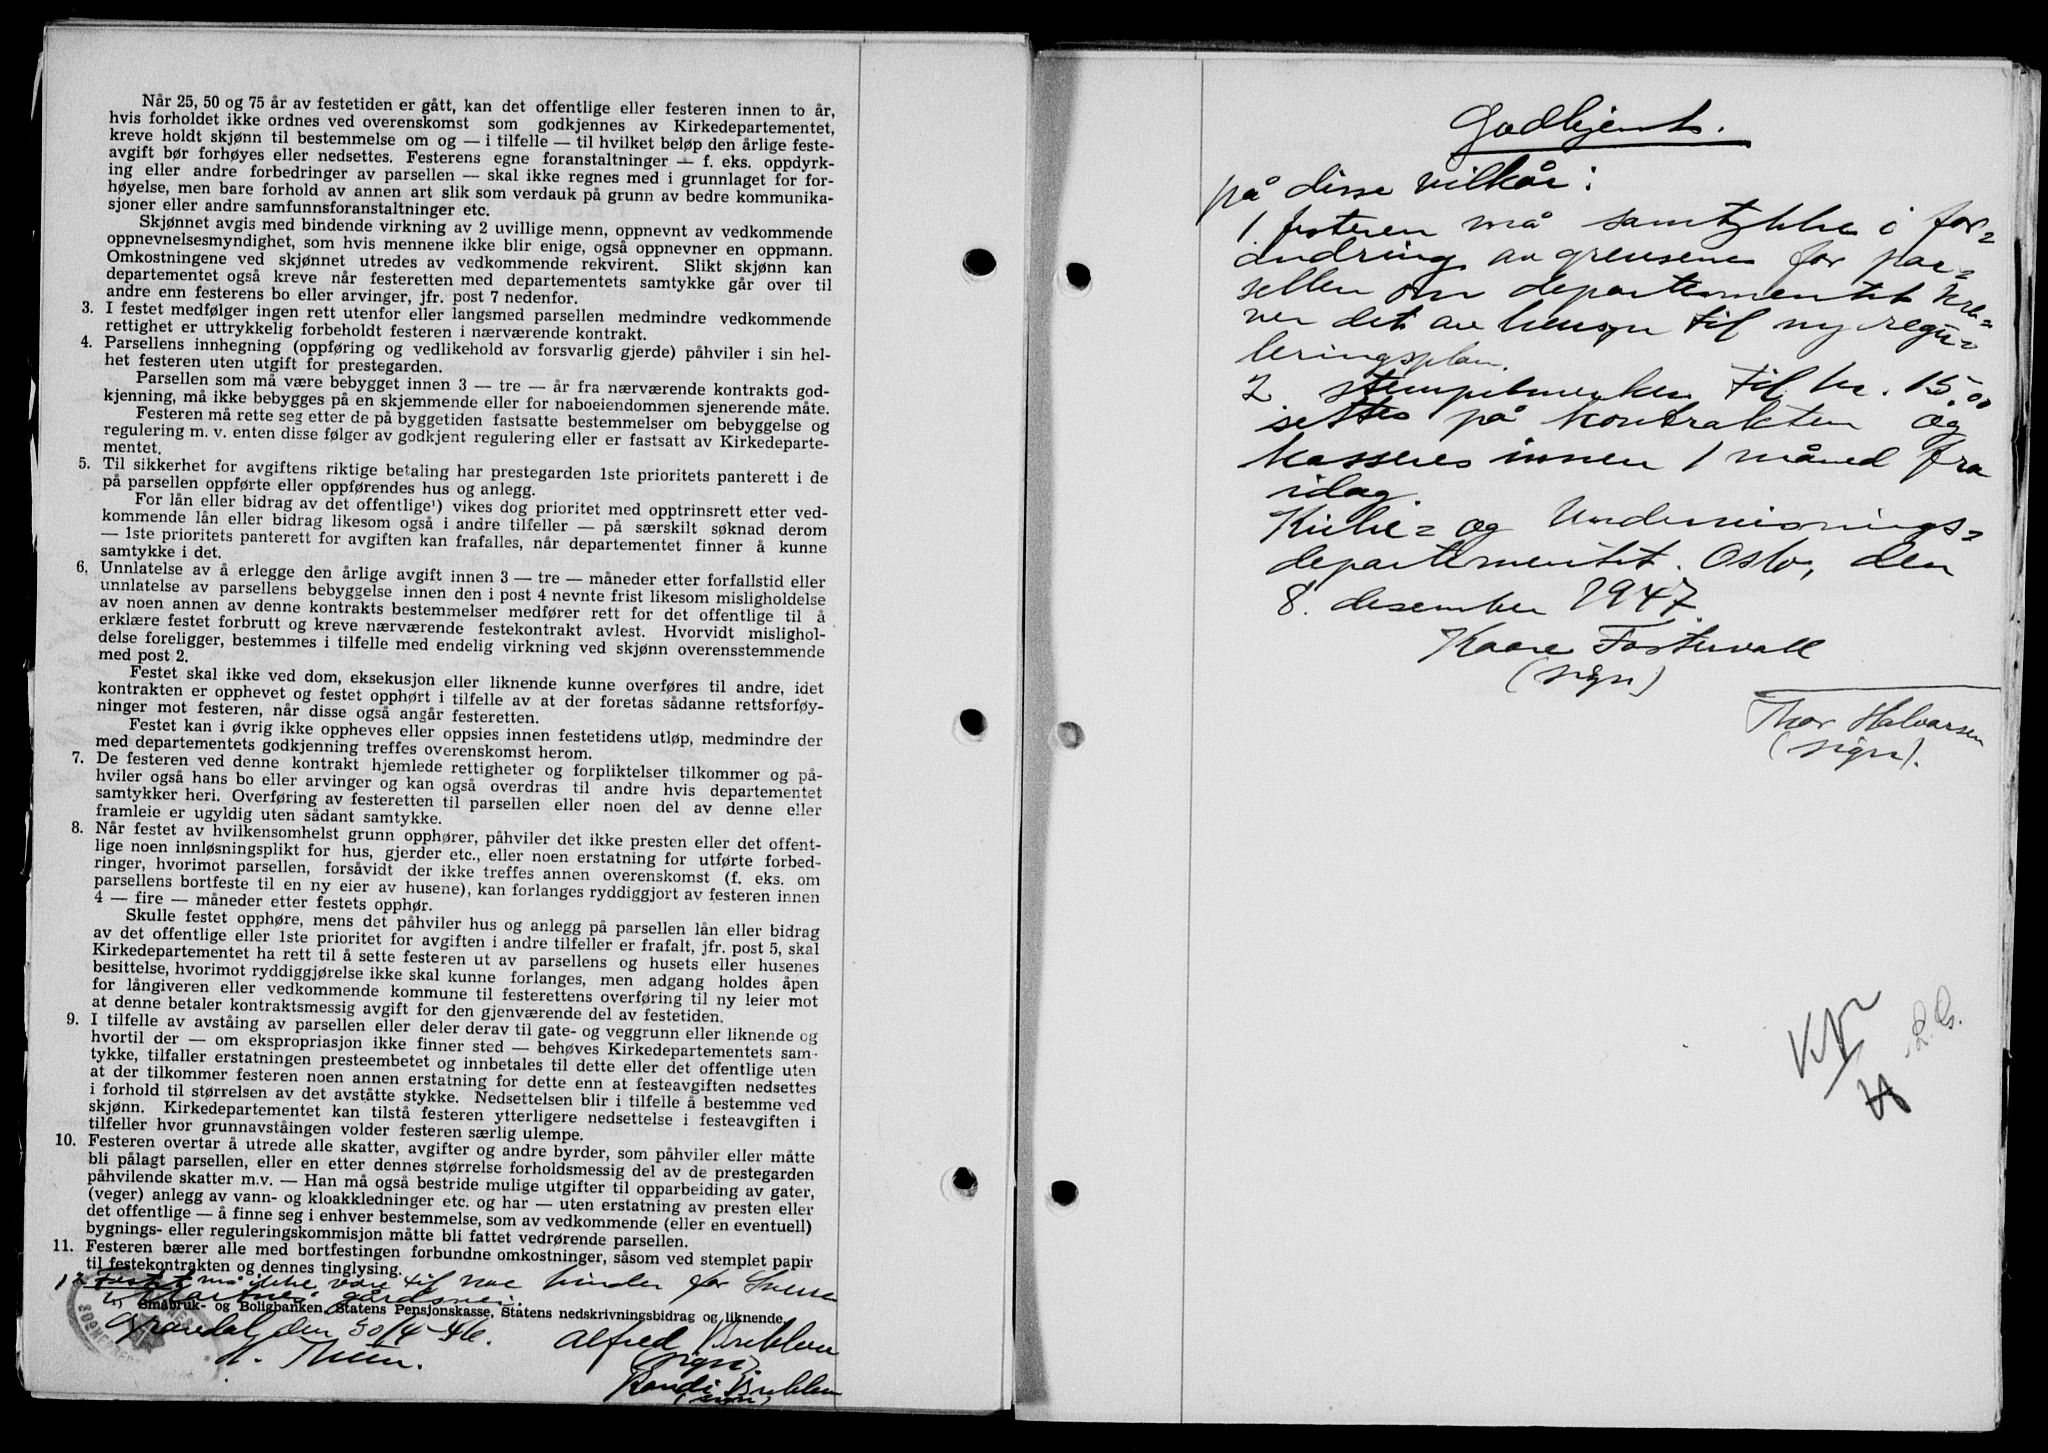 Når 25, 50 og 75 år av festetiden er gått, kan det offentlige eller festeren innen to år,
hvis forholdet ikke ordnes ved overenskomst som godkjennes av Kirkedepartementet,
kreve holdt skjønn til bestemmelse om og — i tilfelle — til hvilket beløp den årlige feste-
avgift bør forhøyes eller nedsettes. Festerens egne foranstaltninger — f. eks. oppdyrk-
ing eller andre forbedringer av parsellen — skal ikke regnes med i grunnlaget for for-
høyelse, men bare forhold av annen art slik som verdauk på grunn av bedre kommunika-
sjoner eller andre samfunnsforanstaltninger etc.
Skjønnet avgis med bindende virkning av 2 uvillige menn, oppnevnt av vedkommende
oppnevnelsesmyndighet, som hvis mennene ikke blir enige, også oppnevner en oppmann.
Omkostningene ved skjønnet utredes av vedkommende rekvirent. Slikt skjønn kan
departementet også kreve når festeretten med departementets samtykke går over til
andre enn festerens bo eller arvinger, jfr. post 7 nedenfor.
3. I festet medfølger ingen rett utenfor eller langsmed parsellen medmindre vedkommende
rettighet er uttrykkelig forbeholdt festeren i nærværende kontrakt.
4. Parsellens innhegning (oppføring og vedlikehold av forsvarlig gjerde) påhviler i sin hel-
het festeren uten utgift for prestegarden.
Parsellen som må være bebygget innen 3 — tre — år fra nærværende kontrakts god-
kjenning, må ikke bebygges på en skjemmende eller for naboeiendommen sjenerende måte.
Festeren må rette seg etter de på byggetiden fastsatte bestemmelser om bebyggelse og
regulering m. v. enten disse følger av godkjent regulering eller er fastsatt av Kirkedeparte-
mentet.
5. Til sikkerhet for avgiftens riktige betaling har prestegarden 1ste prioritets panterett i de
på parsellen oppførte eller oppførendes hus og anlegg.
For lån eller bidrag av det offentlige¹) vikes dog prioritet med opptrinsrett etter ved-
kommende lån eller bidrag likesom også i andre tilfeller — på særskilt søknad derom
— 1ste prioritets panterett for avgiften kan frafalles, når departementet finner å kunne
samtykke i det.
6. Unnlatelse av å erlegge den årlige avgift innen 3 — tre — måneder etter forfallstid eller
unnlatelse av parsellens bebyggelse innen den i post 4 nevnte frist likesom misligholdelse
av noen annen av denne kontrakts bestemmelser medfører rett for det offentlige til å
erklære festet forbrutt og kreve nærværende festekontrakt avlest. Hvorvidt misligho­l-
delse foreligger, bestemmes i tilfelle med endelig virkning ved skjønn overensstemmende
med post 2.
Festet skal ikke ved dom, eksekusjon eller liknende kunne overføres til andre, idet
kontrakten er opphevet og festet opphørt i tilfelle av at der foretas sådanne rettsforføy-
ninger mot festeren, når disse også angår festeretten.
Festet kan i øvrig ikke oppheves eller oppsies innen festetidens utløp, medmindre der
med departementets godkjenning treffes overenskomst herom.
7. De festeren ved denne kontrakt hjemlede rettigheter og forpliktelser tilkommer og på-
hviler også hans bo eller arvinger og kan også overdras til andre hvis departementet
samtykker heri. Overføring av festeretten til parsellen eller noen del av denne eller
framleie er ugyldig uten sådant samtykke.
8. Når festet av hvilkensomhelst grunn opphører, påhviler det ikke presten eller det offent-
lige noen innløsningsplikt for hus, gjerder etc., eller noen erstatning for utførte forbed-
ringer, hvorimot parsellen, forsåvidt der ikke treffes annen overenskomst (f. eks. om
parsellens bortfeste til en ny eier av husene), kan forlanges ryddiggjort av festeren innen
4 — fire — måneder etter festets opphør.
Skulle festet opphøre, mens det påhviler hus og anlegg på parsellen lån eller bidrag
av det offentlige eller 1ste prioritet for avgiften i andre tilfeller er frafalt, jfr. post 5, skal
Kirkedepartementet ha rett til å sette festeren ut av parsellens og husets eller husenes
besittelse, hvorimot ryddiggjørelse ikke skal kunne forlanges, men adgang holdes åpen
for långiveren eller vedkommende kommune til festerettens overføring til ny leier mot
at denne betaler kontraktsmessig avgift for den gjenværende del av festetiden.
9. I tilfelle av avståing av parsellen eller deler derav til gate- og veggrunn eller liknende og
hvortil der — om ekspropriasjon ikke finner sted — behøves Kirkedepartementets sam-
tykke, tilfaller erstatningen presteembetet og innbetales til dette eller det offentlige uten
at der tilkommer festeren noen annen erstatning for dette enn at festeavgiften nedsettes
i forhold til størrelsen av det avståtte stykke. Nedsettelsen blir i tilfelle å bestemme ved
skjønn. Kirkedepartementet kan tilstå festeren ytterligere nedsettelse i festeavgiften i
tilfeller hvor grunnavståingen volder festeren særlig ulempe.
10. Festeren overtar å utrede alle skatter, avgifter og andre byrder, som påhviler eller måtte
bli pålagt parsellen, eller en etter dennes størrelse forholdsmessig del av de prestegarden
påhvilende skatter m.v. — Han må også bestride mulige utgifter til opparbeiding av gater,
(veger) anlegg av vann- og kloakkledninger etc. og har — uten erstatning av presten eller
det offentlige — å finne seg i enhver bestemmelse, som av vedkommende (eller en eventuell)
bygnings- eller reguleringskommisjon måtte bli fattet vedrørende parsellen.
11. Festeren bærer alle med bortfestingen forbundne omkostninger, såsom ved stemplet papir
til festekontrakten og dennes tinglysing.
12 Festet må ikke være til noe hinder for
gårdsvei.
¹) Småbruk- og Boligbanken, Statens Pensjonskasse, Statens nedskrivningsbidrag og liknende.
den 30/4-46. Alfred
H. (sign)
Randi
(sign)
Godkjent.
på disse vilkår:
1. festeren må samtykke i for=
andring av grensene for par=
sellen om departementet kre=
ver det av hensyn til ny regu=
leringsplan.
2 stempelmerker til kr. 15,00
settes på kontrakten og
kasseres innen 1 måned fra
idag.
Kirke= og Undervisnings=
departementet. Oslo, den
8. desember 1947.
Kaare Fostervoll
(sign)
Thor Halvorsen
(sign).